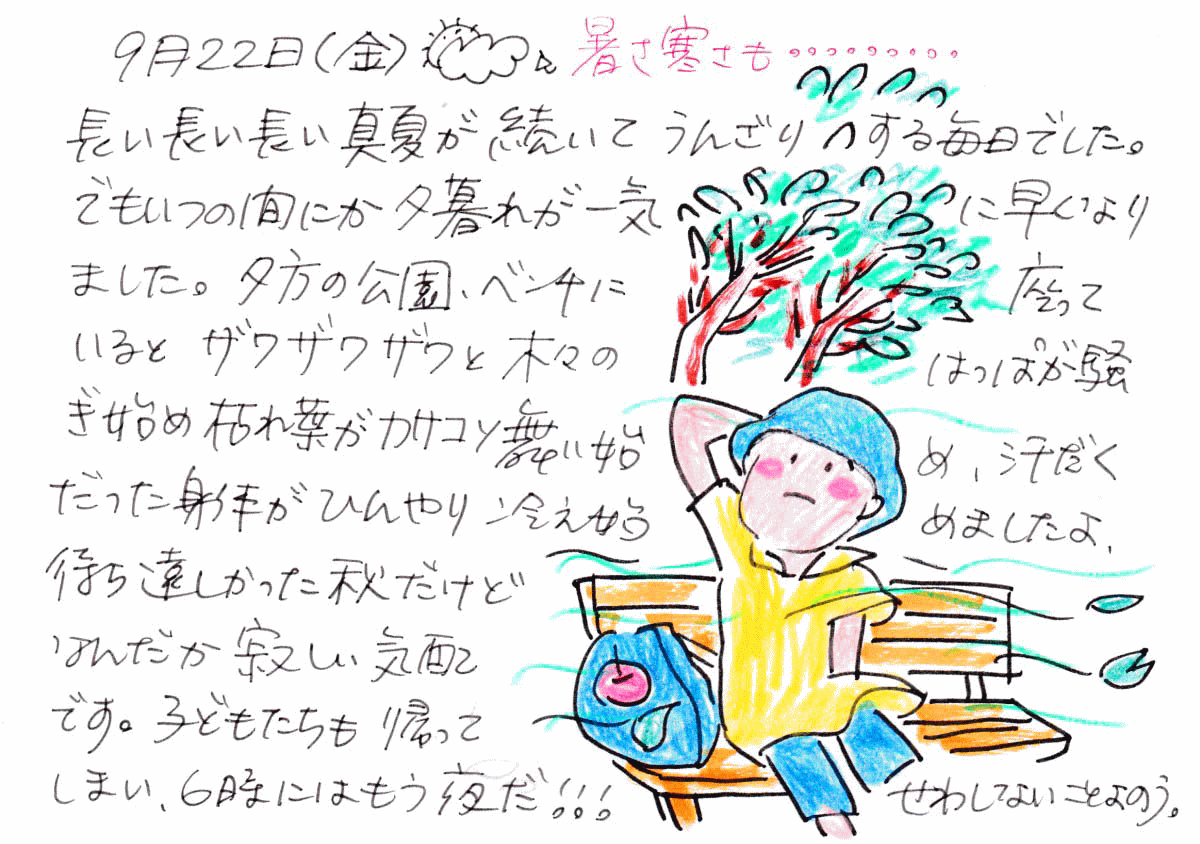 9月22日(金) 暑さ寒さも・・・・・・・・・
長い長い長い真夏が続いてうんざりする毎日でした。
でもいつの間にか夕暮れが一気に早くなり
ました。夕方の公園、ベンチに座って
いるとザワザワザワと木々のはっぱが騒
ぎ始め枯れ葉がカサコソ舞い始め、汗だく
だった身体がひんやり冷え始めましたよ、
待ち遠しかった秋だけど
なんだか寂しい気配
です。子どもたちも帰って
しまい、6時にはもう夜だ!!! せわしてないことよのう。